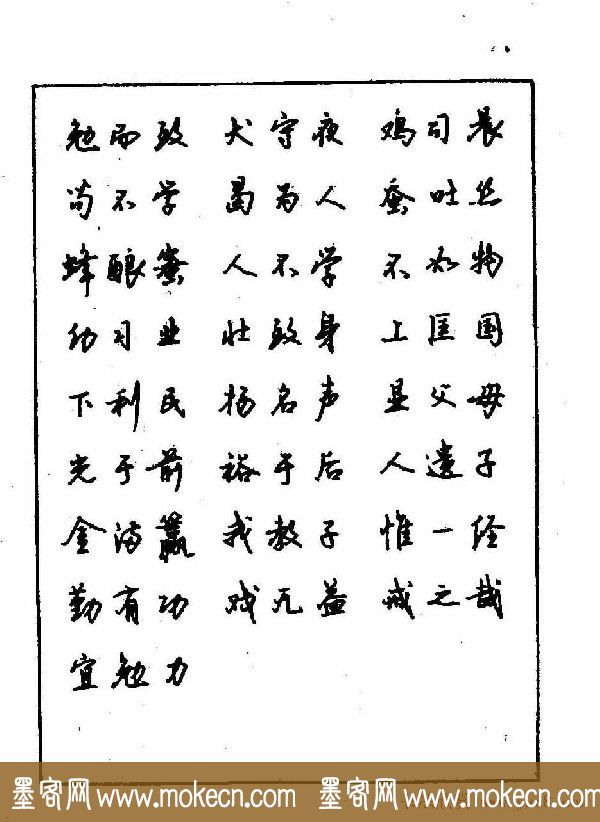 勉而致 犬守夜 鸡司晨
苟不学 曷为人 蚕吐丝
蜂酿蜜 人不学 不如物
幼习业 壮致身 上匡国
下利民 扬名声 显父母
光于前 裕于后 人遗子
金满籯 我教子 惟一经
勤有功 戏无益 戒之哉
宜勉力
墨客网 www.mokecn.com 墨客网 www.mokecn.com